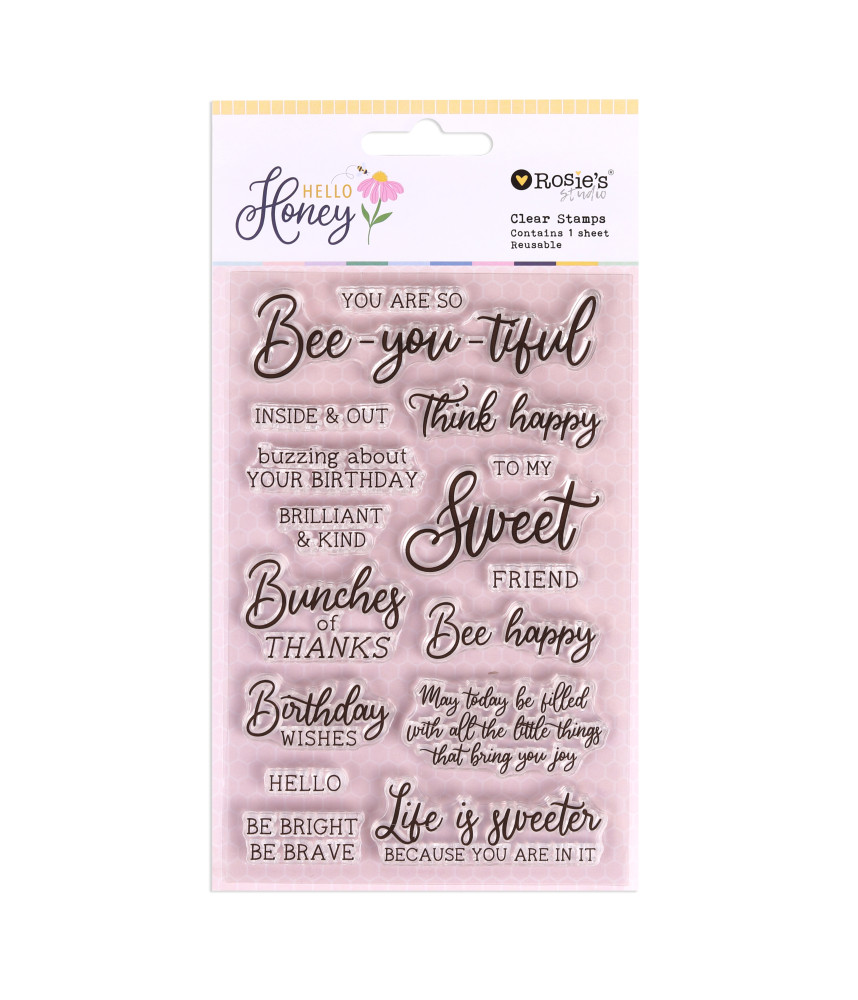 HELLO
Honey
Rosie's®
studio
Clear Stamps
Contains 1 sheet
Reusable
YOU ARE SO
Bee-you-tiful
INSIDE & OUT
Think happy
buzzing about
YOUR BIRTHDAY
TO MY
Sweet
FRIEND
BRILLIANT
& KIND
Bunches
of
THANKS
Bee happy
Birthday
WISHES
May today be filled
with all the little things
that bring you joy
HELLO
BE BRIGHT
BE BRAVE
Life is sweeter
BECAUSE YOU ARE IN IT